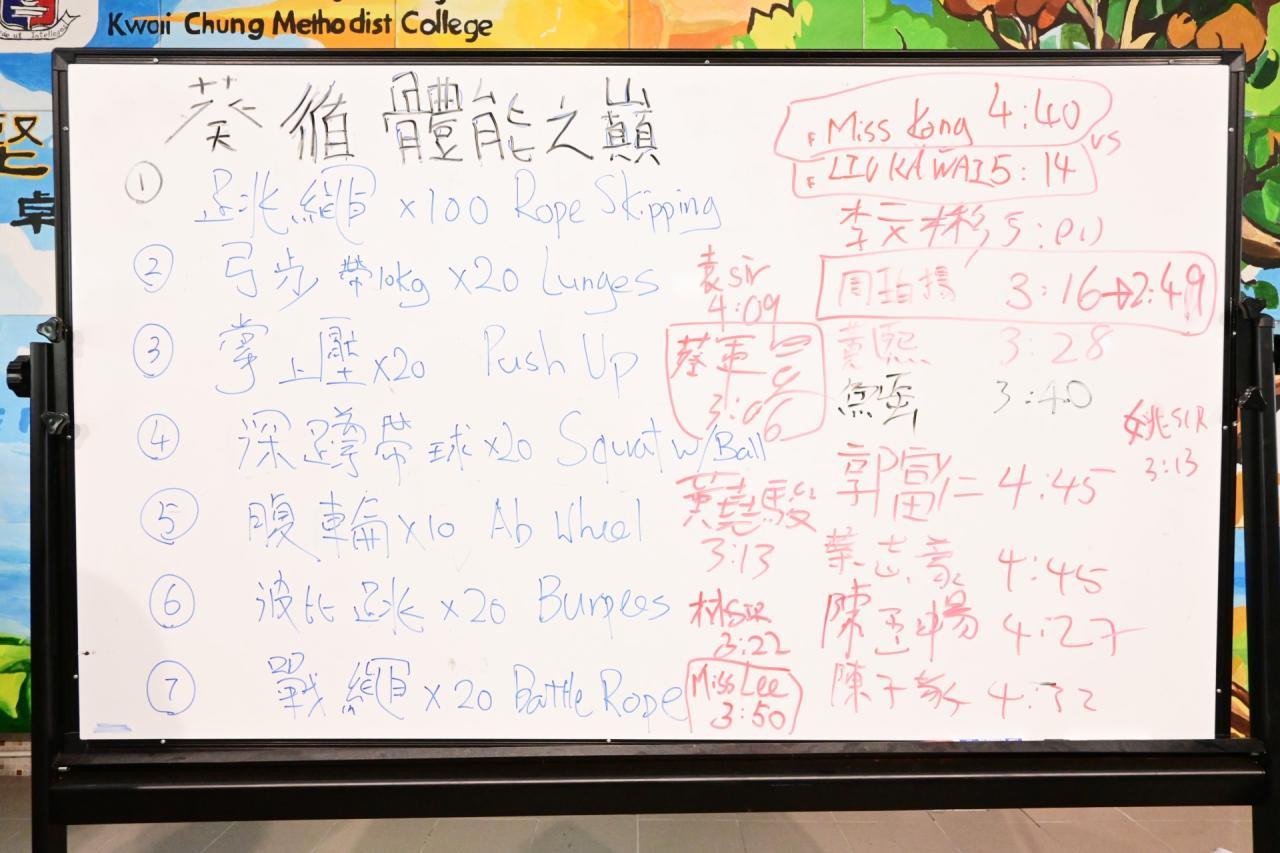 Kwaii Chung Methodist College
葵循體能之巔
① 跳繩 ×100 Rope Skipping
② 弓步 帶10kg ×20 Lunges
③ 掌上壓 ×20 Push Up
④ 深蹲帶球 ×20 Squat w/Ball
⑤ 腹輪 ×10 Ab Wheel
⑥ 波比跳 ×20 Burpees
⑦ 戰繩 ×20 Battle Rope
袁sir
4:09
3:06
黃堯駿
3:13
林SIR
3:22
Miss Lee
3:50
F Miss Kong 4:40
vs
F LIU KA WAI 5:14
李文彬
周珀揚 3:16→2:49
黃熙 3:28
魚蛋 3:40
姚SIR
3:13
郭富仁 4:45
葉志豪 4:45
4:27
陳子豪 4:32